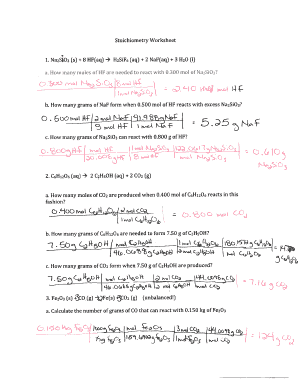 Stoichiometry Worksheet
1. Na₂SiO₃ (s) + 8 HF(aq) → H₂SiF₆ (aq) + 2 NaF(aq) + 3 H₂O (l)
a. How many moles of HF are needed to react with 0.300 mol of Na₂SiO₃?
0.300 mol Na₂SiO₃ | 8 mol HF
1 mol Na₂SiO₃ = 2.40 mol HF
b. How many grams of NaF form when 0.500 mol of HF reacts with excess Na₂SiO₃?
0.500 mol HF | 2 mol NaF | 41.988g NaF
8 mol HF | 1 mol NaF = 5.25 g NaF
c. How many grams of Na₂SiO₃ can react with 0.800 g of HF?
0.800g HF | 1 mol HF | 1 mol Na₂SiO₃ | Na₂SiO₃ = 0.610g
20.006g HF | 8 mol HF | 1 mol Na₂SiO₃ Na₂SiO₃
2. C₆H₁₂O₆ (aq) → 2 C₂H₅OH (aq) + 2 CO₂ (g)
a. How many moles of CO₂ are produced when 0.400 mol of C₆H₁₂O₆ reacts in this
fashion?
0.400 mol C₆H₁₂O₆ | 2 mol CO₂ = 0.800 mol CO₂
1 mol C₆H₁₂O₆
b. How many grams of C₆H₁₂O₆ are needed to form 7.50 g of C₂H₅OH?
7.50g C₂H₅OH | 1 mol C₂H₅OH | 1 mol C₆H₁₂O₆ | C₆H₁₂O₆
46.0688g C₂H₅OH | 2 mol C₂H₅OH | 1 mol C₆H₁₂O₆ g C₆H₁₂O₆
c. How many grams of CO₂ form when 7.50 g of C₂H₅OH are produced?
7.50g C₂H₅OH | 1 mol C₂H₅OH | 2 mol CO₂ | 44.0098g CO₂ = 7.16 g CO₂
46.0688g C₂H₅OH | 2 mol C₂H₅OH | 1 mol CO₂
3. Fe₂O₃ (s) + CO (g) → Fe(s) + CO₂ (g) (unbalanced!)
a. Calculate the number of grams of CO that can react with 0.150 kg of Fe₂O₃
0.150 kg Fe₂O₃ | 1000g Fe₂O₃ | 1 mol Fe₂O₃ | 3 mol CO₂ | 44.0098g CO₂ = 124g CO₂
1 kg Fe₂O₃ | Fe₂O₃ | 1 mol Fe₂O₃ | 1 mol CO₂